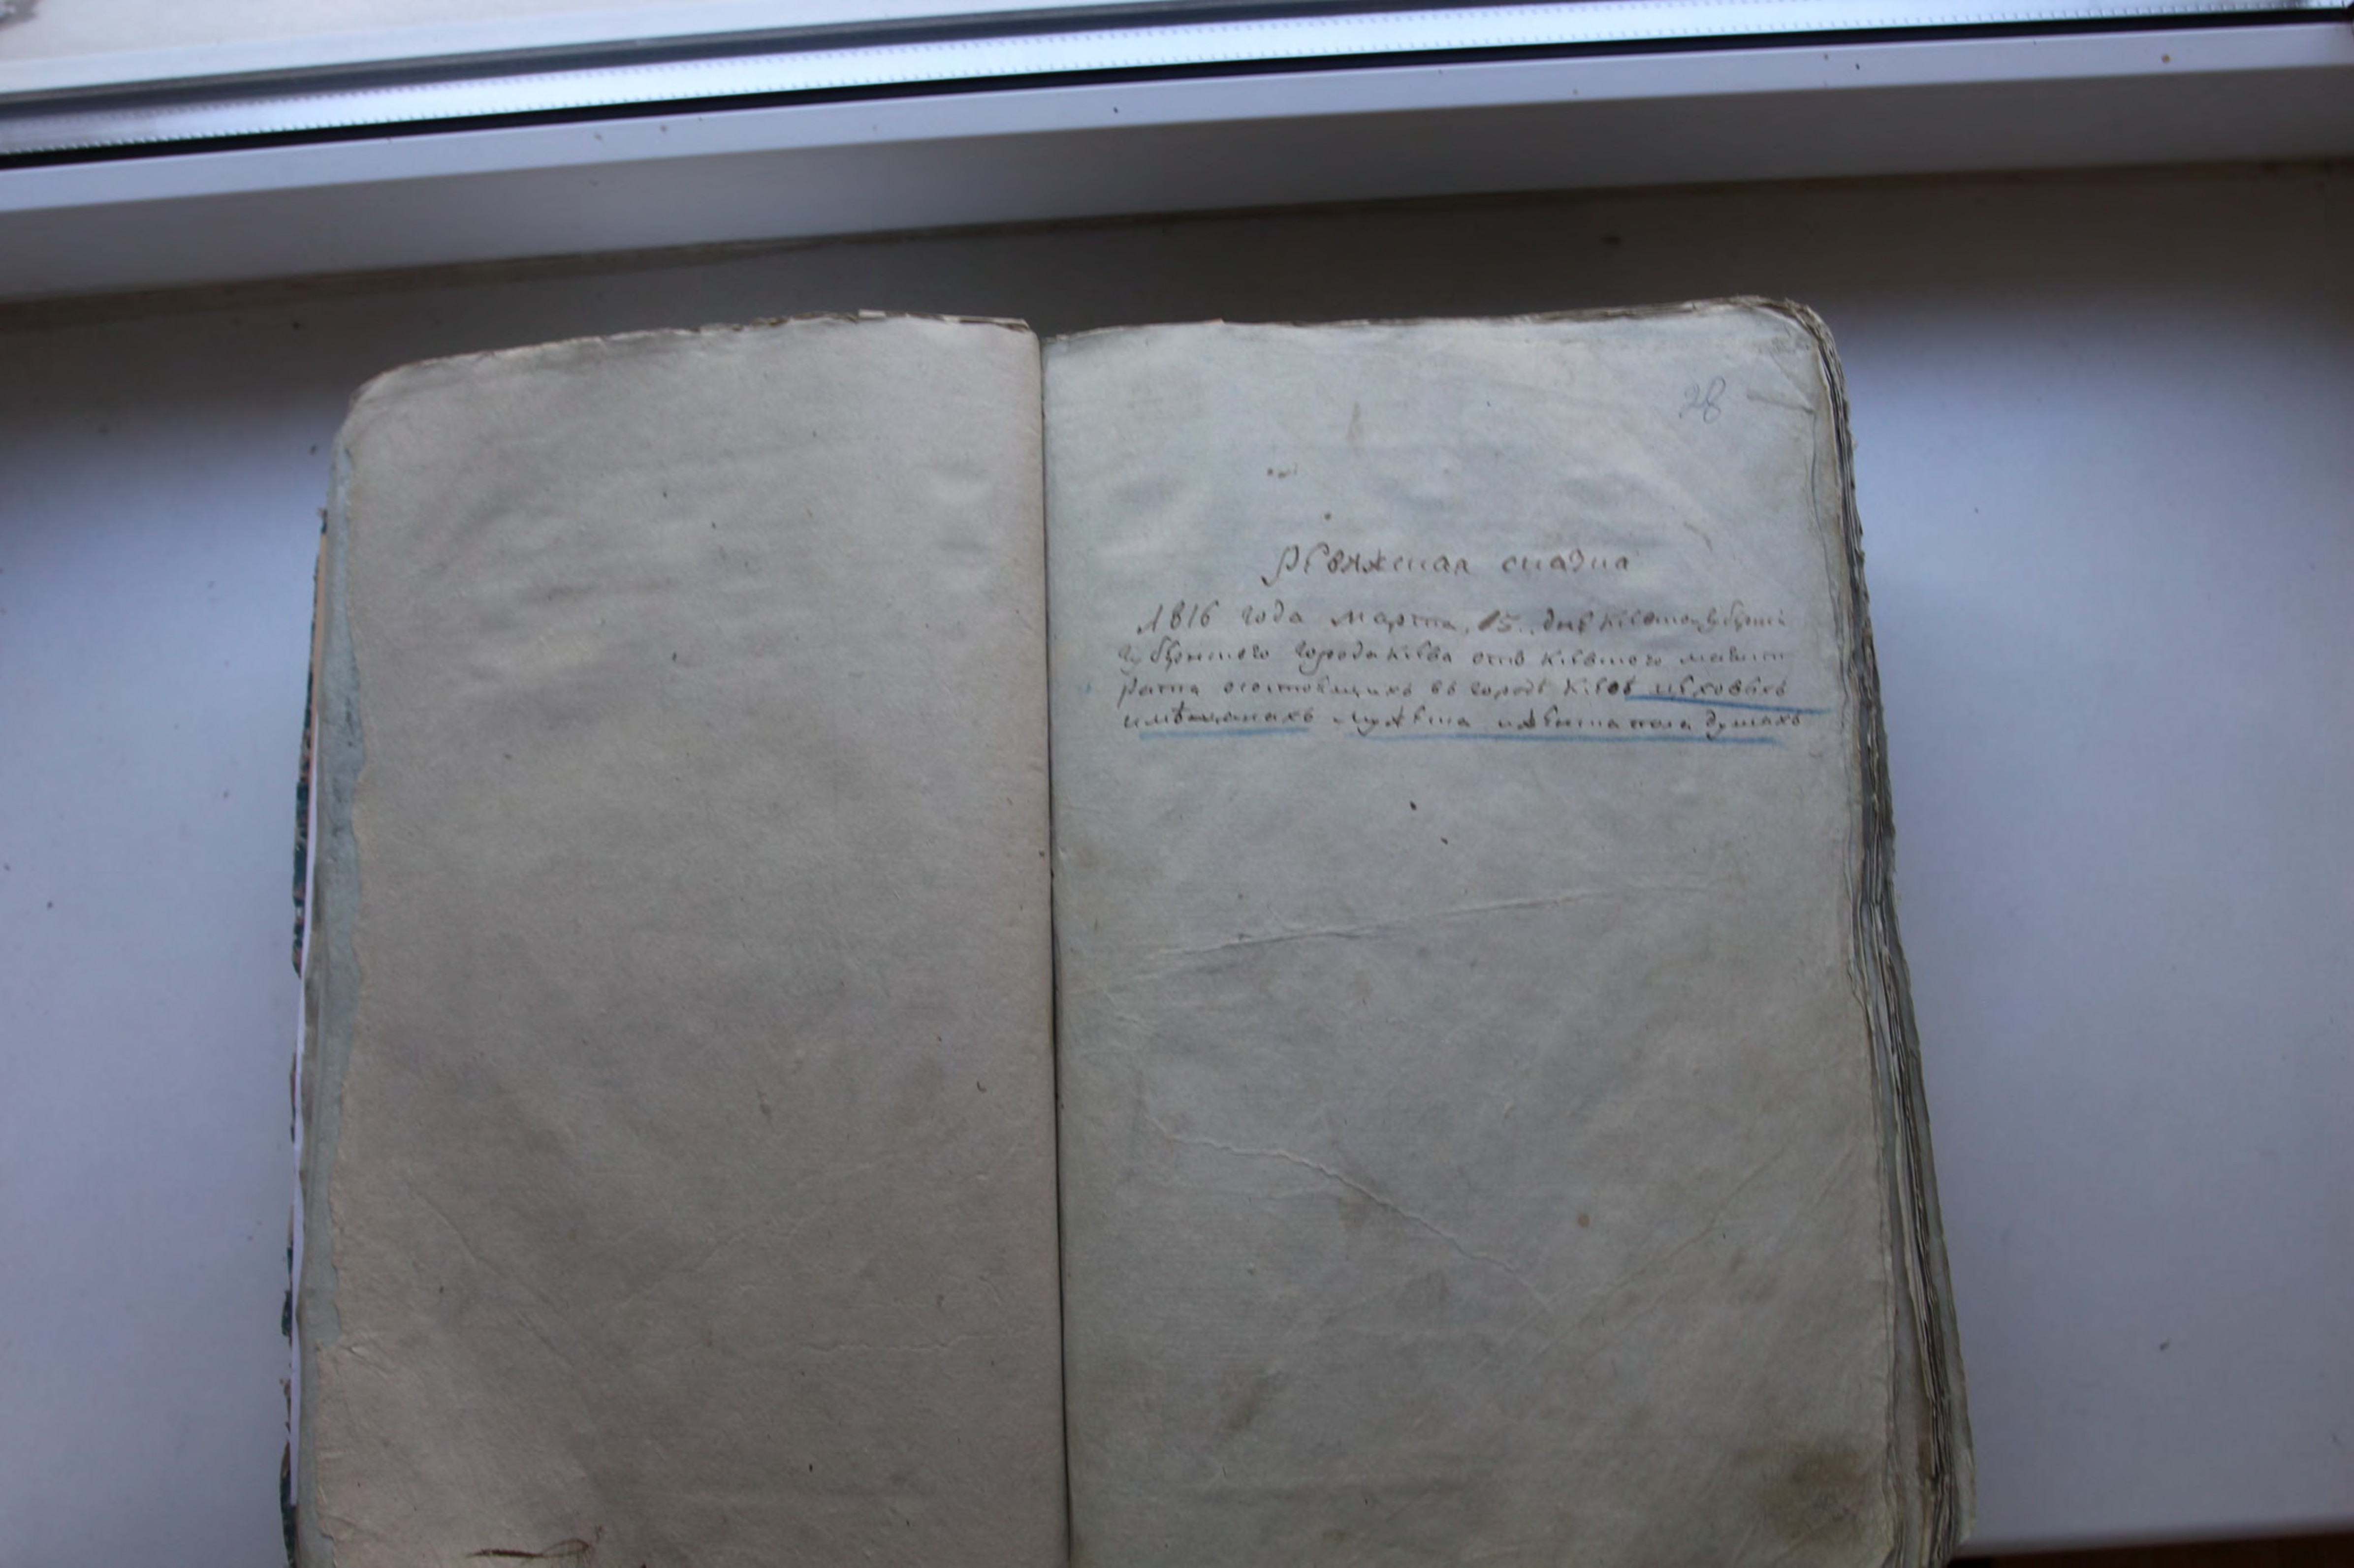 28
Ревижская сказка
1816 года марта, 15. дня Киевской губернии
губернского города Киева отъ Киевского магист
рата осостоящихъ въ городѣ Киевѣ цеховыхъ
имѣщанахъ мужеска иженска пола душахъ